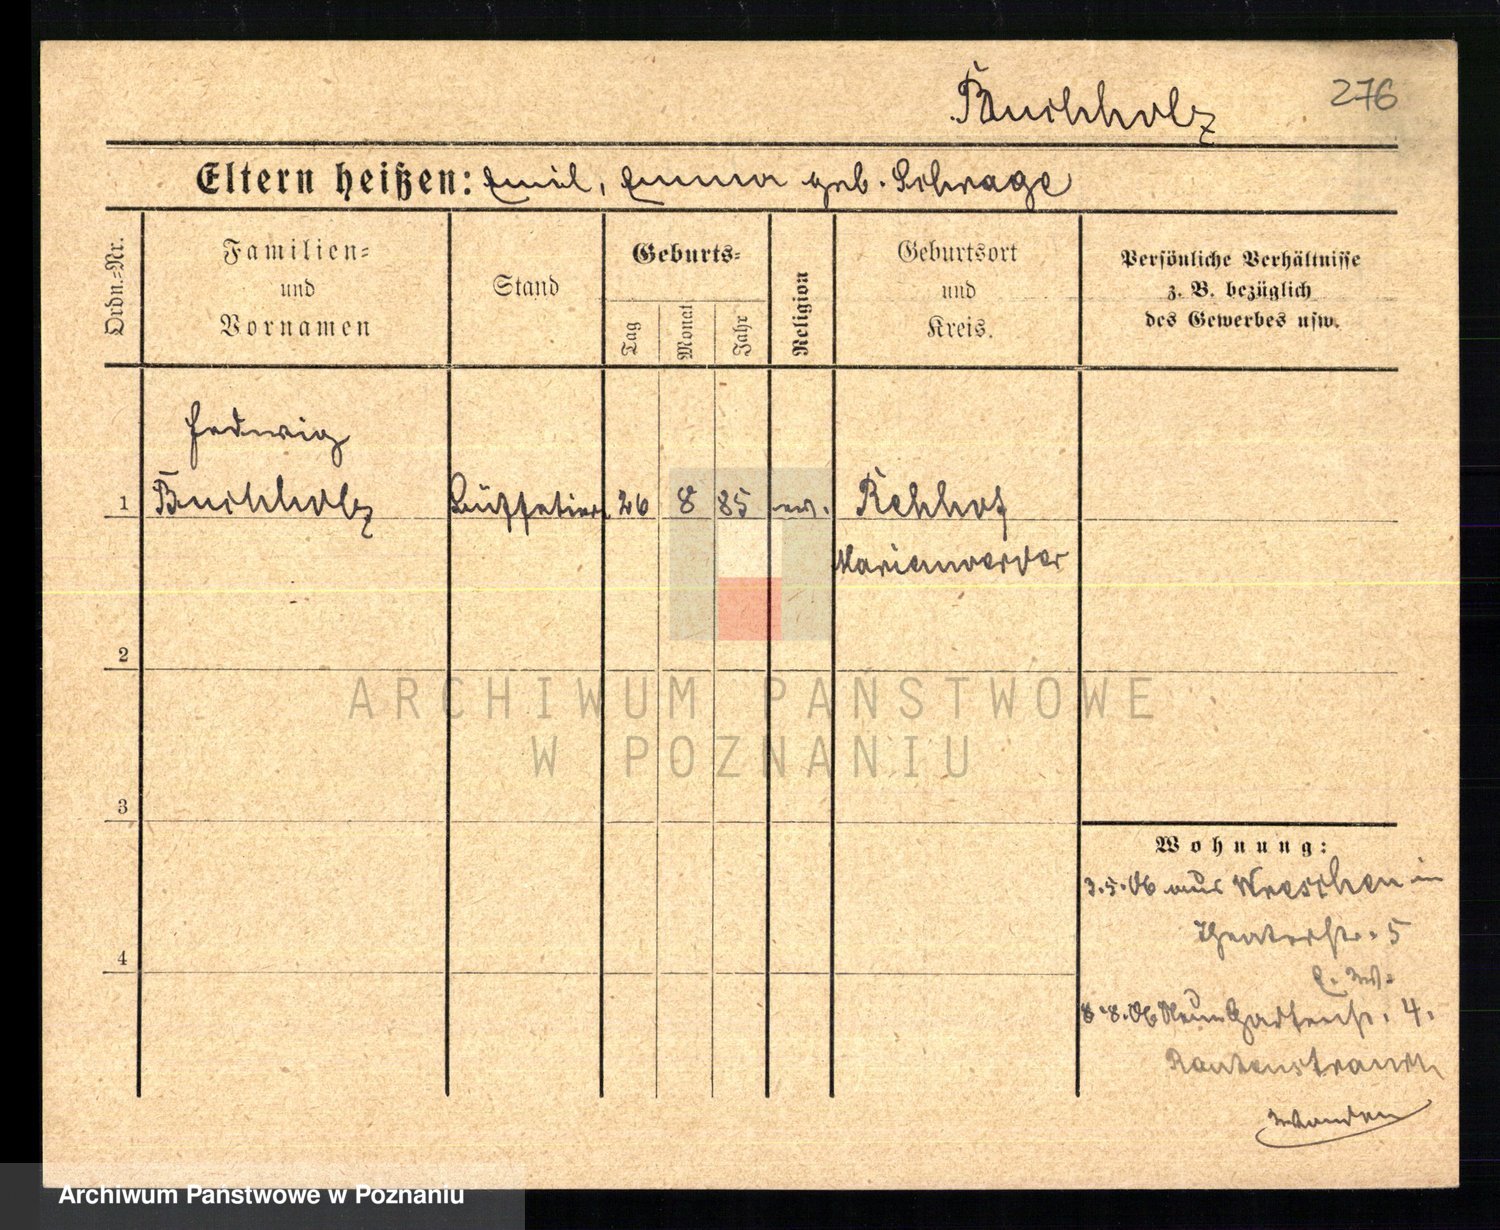 Buchholz
276
Eltern heißen: Emil, Emma geb. Schrage
Ordn.=Nr.
Familien=
und
Vornamen
Stand
Geburts=
Tag
Monat
Jahr
Religion
Geburtsort
und
Kreis.
Persönliche Verhältnisse
z. B. bezüglich
des Gewerbes usw.
Hedwig
1 Buchholz Büffetiere 26 8 85 ev. Rehhof
Marienwerder
2
ARCHIWUM PAŃSTWOWE
W POZNANIU
3
Wohnung:
3.5.06 aus Wreschen in
Theaterstr. 5
4
8.8.06 Neue Gartenstr. 4.
Rautenstrauch
wenden
Archiwum Państwowe w Poznaniu